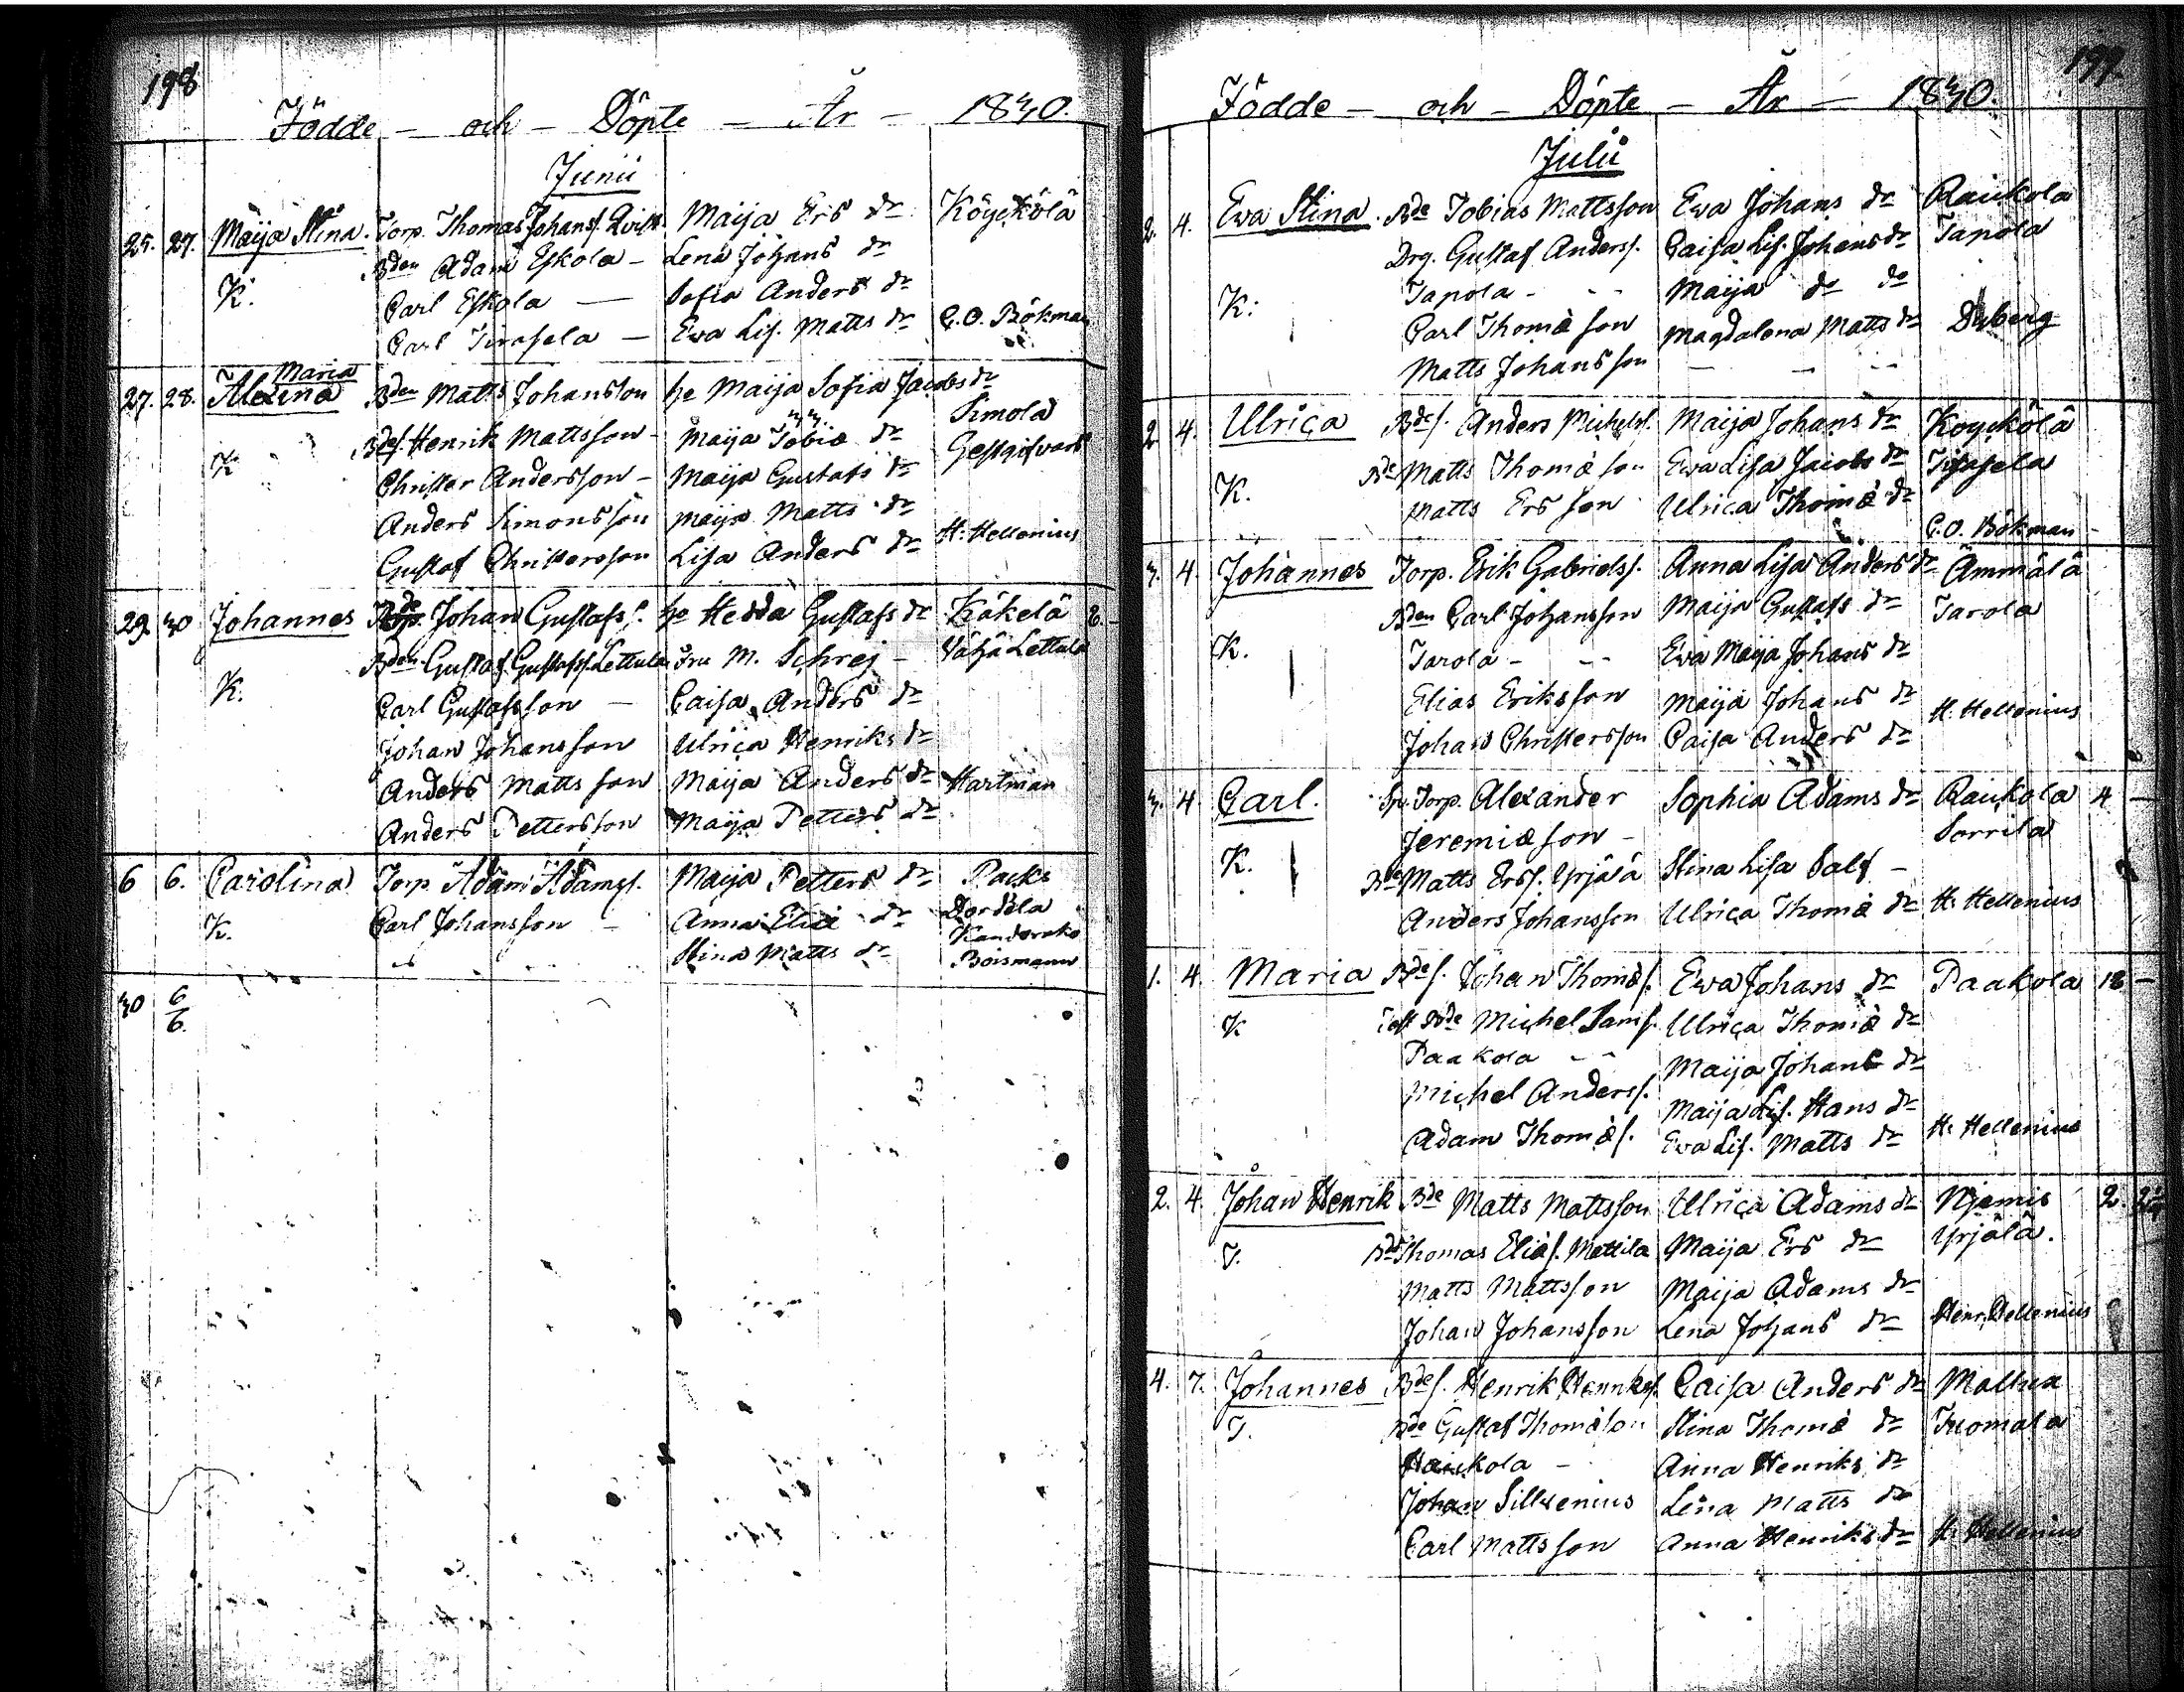 198
Födde - och - Döpte - År - 1840.
Junii
25. 27. Maija Stina. Torp. Thomas Johans. Qvist. Maija Ers dr Köyckölä
Bden Adam Eskola - Lena Johans dr
K. Carl Eskola - Sofia Anders dr
Carl - Ewa Lis. Matts dr C. O. Bökman
Maria
27. 28. Alexina Bden Matts Johansson he Maija Sofia Jacobs dr
Simola
Bdes. Henrik Mattsson - Maija Tobiæ dr
K Christer Andersson - Maija Gustafs dr
Anders Simonsson Maija Matts dr
Gustaf Christersson Lisa Anders dr H. Hellenius
29. 30 Johannes Johan Gustafs. he Hedda Gustafs dr Käkelä 2.-
Bden Gustaf Gustafss. Lettula Fru M. Schrej - Vähä Lettula
K. Carl Gustafsson - Caisa Anders dr
Johan Johansson Ulrica Henriks dr
Anders Mattsson Maija Anders dr Hartman
Anders Pettersson Maija Petters dr
6 6. Carolina Torp. Adam Adams. Maija Petters dr
K. Carl Johansson - Anna Eliæ dr
Stina Matts dr Boismann
30 6/6.
199.
Födde - och - Döpte - År - 1840.
Julii
2. 4. Ewa Stina. Bde Tobias Mattsson Ewa Johans dr Raukola
Drg. Gustaf Anders. Caisa Lis. Johans dr Tapola
K: Tapola - Maija do dr
Carl Thomæson Magdalena Matts dr Dyberg
Matts Johansson - - -
2 4. Ulrica Bdes. Anders Michels. Maija Johans dr Koyckölä
K. Bde Matts Thomæson Ewa Lisa Jacobs dr
Matts Ersson Ulrica Thomæ dr
C. O. Bökman
3. 4. Johannes Torp. Erik Gabriels. Anna Lisa Anders dr Ämmälä
Bden Carl Johansson Maija Gustafs dr Tarola
K. Tarola - - Ewa Maija Johans dr
Elias Eriksson Maija Johans dr H. Hellenius
Johan Christersson Caisa Anders dr
3. 4 Carl. Sp. Torp. Alexander Sophia Adams dr Raukola 4 -
Jeremiæson - Sorrila
K. Bde Matts Erss. Yrjälä Stina Lisa Salt -
Anders Johansson Ulrica Thomæ dr H. Hellenius
1. 4. Maria Bdes. Johan Thomæs. Ewa Johans dr Paakola 18 -
K Bde Michel Sams. Ulrica Thomæ dr
Paakola - - Maija Johans dr
Michel Anders. Maija Lis. Hans dr
Adam Thomæs. Ewa Lis. Matts dr H. Hellenius
2. 4. Johan Henrik Bde Matts Mattsson Ulrica Adams dr Njemis 2.
T. Bde Thomas Eliæs. Mattila Maija Ers dr Yrjälä.
Matts Mattsson Maija Adams dr
Johan Johansson Lena Johans dr Henr. Hellenius
4. 7. Johannes Bdes. Henrik Henriks. Caisa Anders dr
T. Bde Gustaf Thomæson Stina Thomæ dr Tuomala
Haukola - Anna Henriks dr
Johan Sillvenius Lena Matts dr
Carl Mattsson Anna Henriks dr H. Hellenius